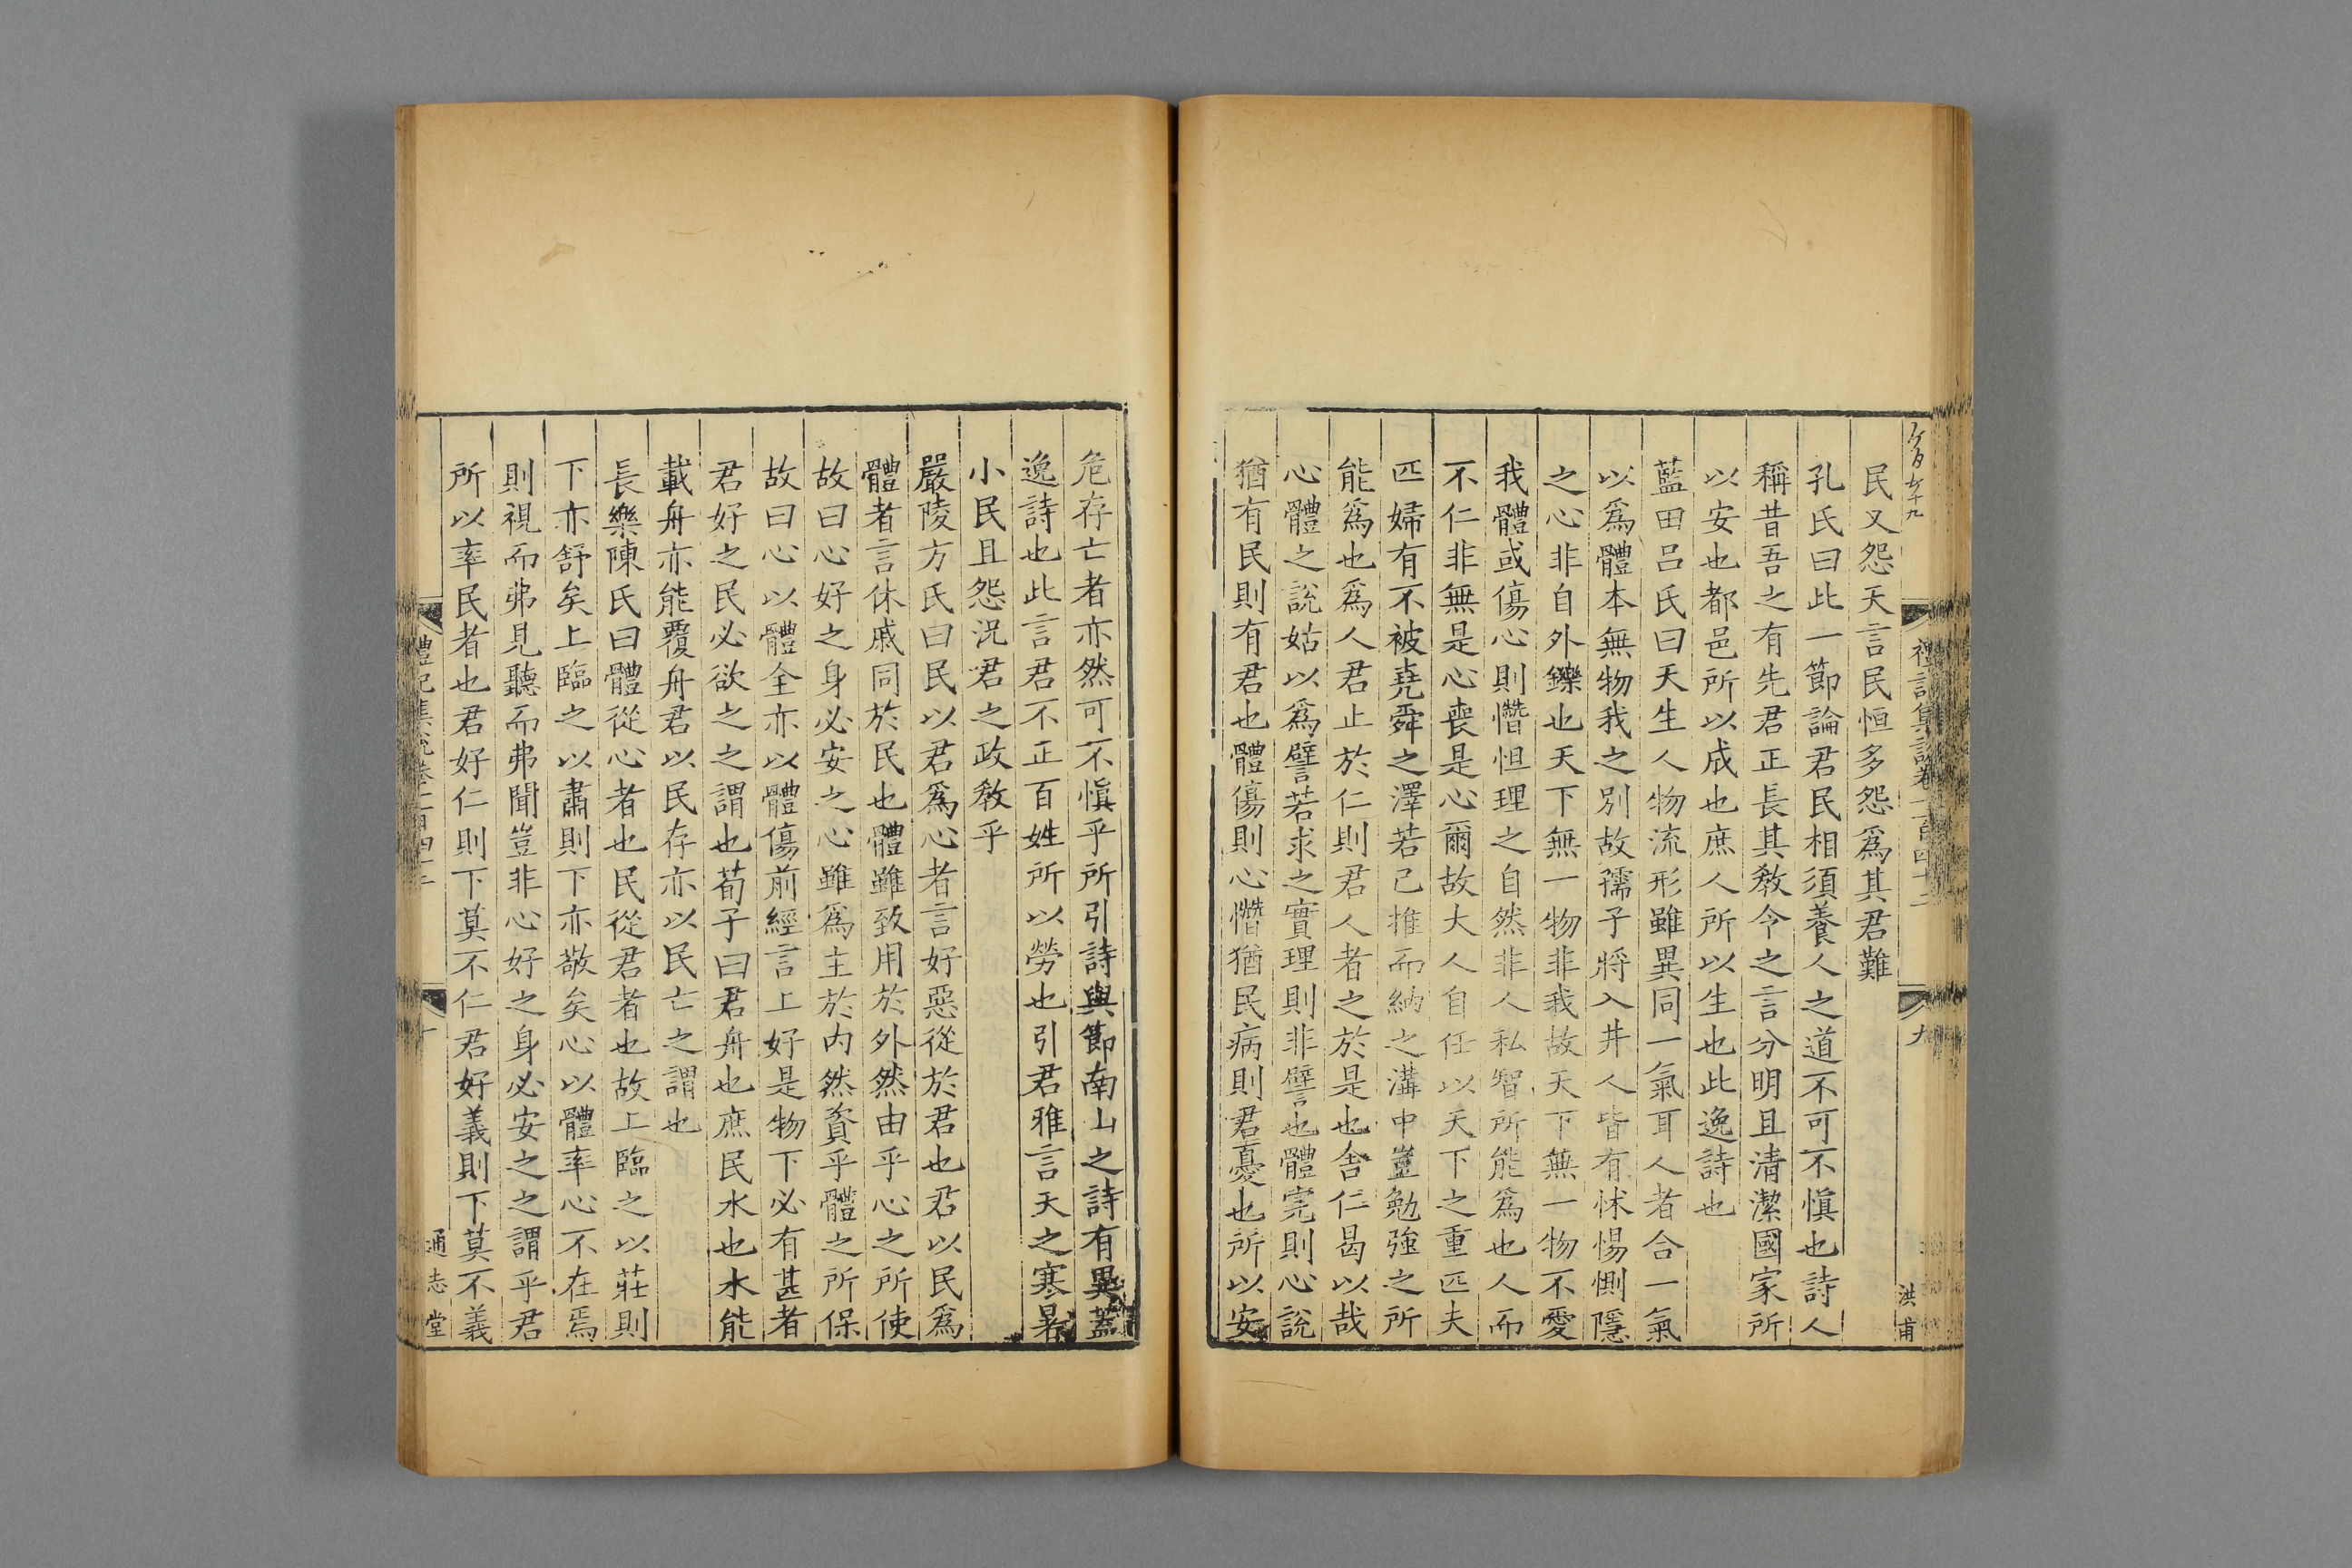 民又怨天言民恒多怨爲其君難
孔氏曰此一節論君民相須養人之道不可不愼也詩人
稱昔吾之有先君正長其敎令之言分明且清潔國家所
以安也都邑所以成也庶人所以生也此逸詩也
藍田呂氏曰天生人物流形雖異同一氣耳人者合一氣
以爲體本無物我之別故孺子將入井人皆有怵惕惻隱
之心非自外鑠也天下無一物非我故天下無一物不愛
我體或傷心則憯怛理之自然非人私智所能爲也人而
不仁非無是心喪是心爾故大人自任以天下之重匹夫
匹婦有不被堯舜之澤若己推而納之溝中豈勉強之所
能爲也爲人君止於仁則君人者之於是也舍仁曷以哉
心體之說姑以爲譬若求之實理則非譬也體完則心說
猶有民則有君也體傷則心憯猶民病則君憂也所以安
禮記集說卷一百四十二
九
洪甫
危存亡者亦然可不愼乎所引詩與節南山之詩有異蓋
逸詩也此言君不正百姓所以勞也引君雅言天之寒暑
小民且怨況君之政敎乎
嚴陵方氏曰民以君爲心者言好惡從於君也君以民爲
體者言休戚同於民也體雖致用於外然由乎心之所使
故曰心好之身必安之心雖爲主於內然資乎體之所保
故曰心以體全亦以體傷前經言上好是物下必有甚者
君好之民必欲之之謂也荀子曰君舟也庶民水也水能
載舟亦能覆舟君以民存亦以民亡之謂也
長樂陳氏曰體從心者也民從君者也故上臨之以莊則
下亦舒矣上臨之以肅則下亦敬矣心以體率心不在焉
則視而弗見聽而弗聞豈非心好之身必安之之謂乎君
所以率民者也君好仁則下莫不仁君好義則下莫不義
禮記集說卷一百四十二
十
通志堂